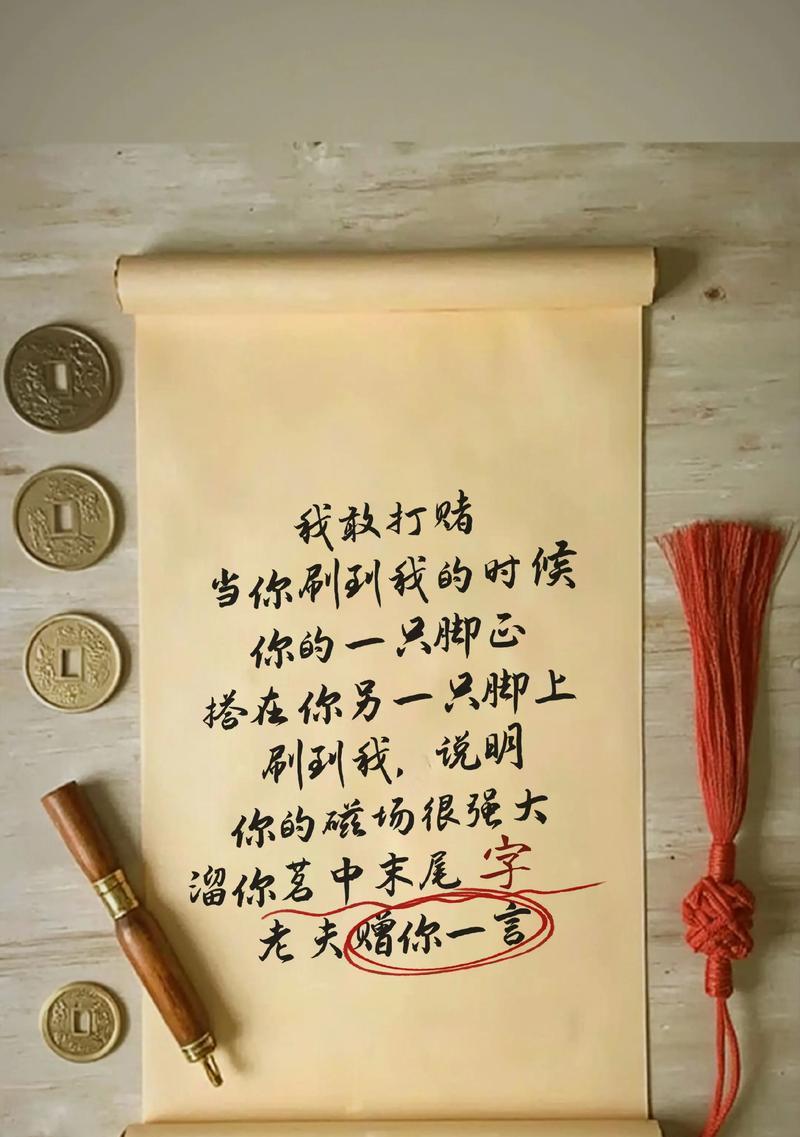 我敢打赌
当你刷到我的时候
你的一只脚正
搭在你另一只脚上
刷到我，说明
你的磁场很强大
溜你茗中末尾字
老夫赠你一言